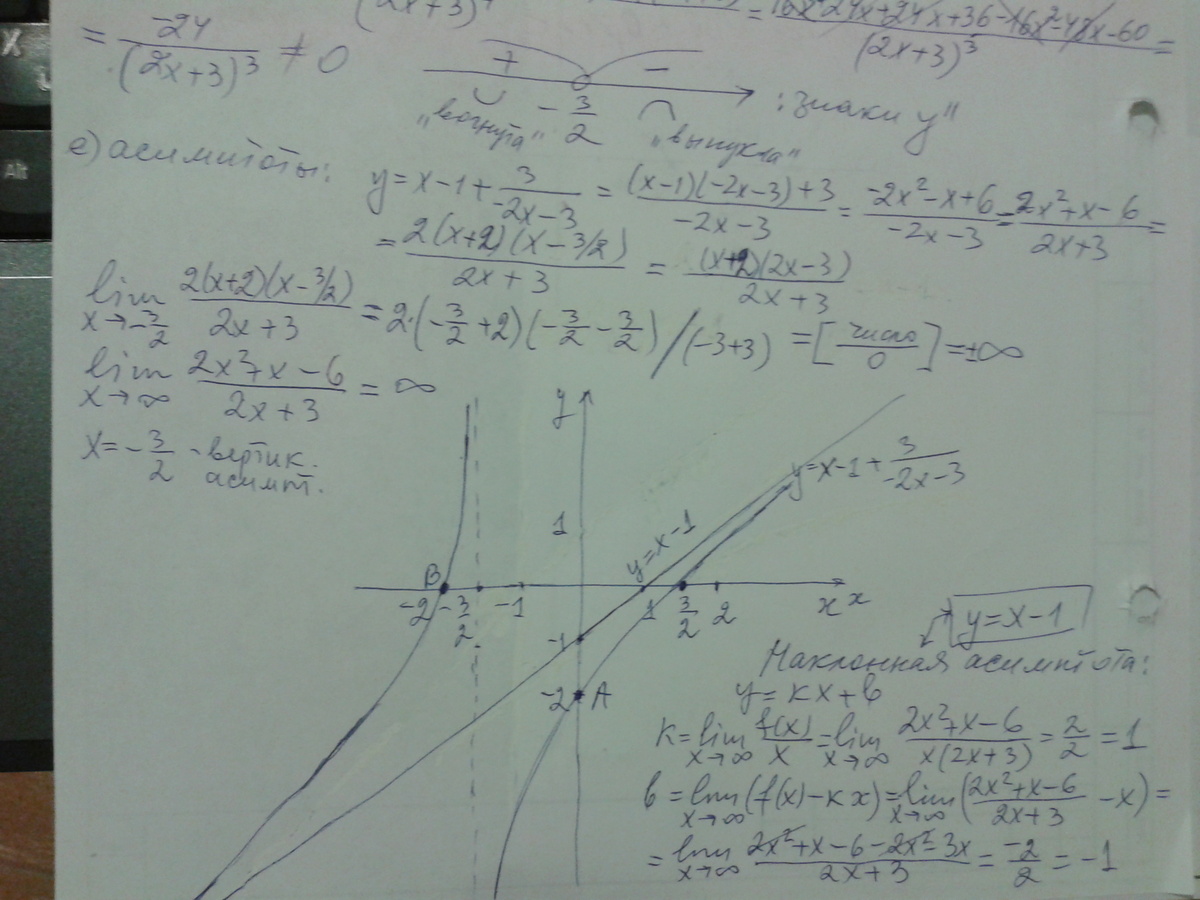 (2x+3)⁴ = 16x²+24x+24x+36-16x²-48x-60 / (2x+3)³ =
= -24/(2x+3)³ ≠ 0
+ -
"вогнута" -3/2 "выпукла" : знаки y"
e) асимптоты:
y=x-1+3/(-2x-3) = ((x-1)(-2x-3)+3)/(-2x-3) = (-2x²-x+6)/(-2x-3) = (2x²+x-6)/(2x+3) =
= 2(x+2)(x-3/2)/(2x+3) = (x+2)(2x-3)/(2x+3)
lim x→-3/2 2(x+2)(x-3/2)/(2x+3) = 2·(-3/2+2)(-3/2-3/2)/(-3+3) = [число/0] = ±∞
lim x→∞ (2x²+x-6)/(2x+3) = ∞
x=-3/2 - вертик.
асимпт.
y
y=x-1+3/(-2x-3)
1
y=x-1
B
-2 -3/2 -1 1 3/2 2 x x
-1
-2 A
y=x-1
Наклонная асимптота:
y=kx+b
k=lim x→∞ f(x)/x = lim x→∞ (2x²+x-6)/(x(2x+3)) = 2/2 = 1
b=lim x→∞ (f(x)-kx) = lim x→∞ ((2x²+x-6)/(2x+3) - x) =
= lim x→∞ (2x²+x-6-2x²-3x)/(2x+3) = -2/2 = -1
X
Alt